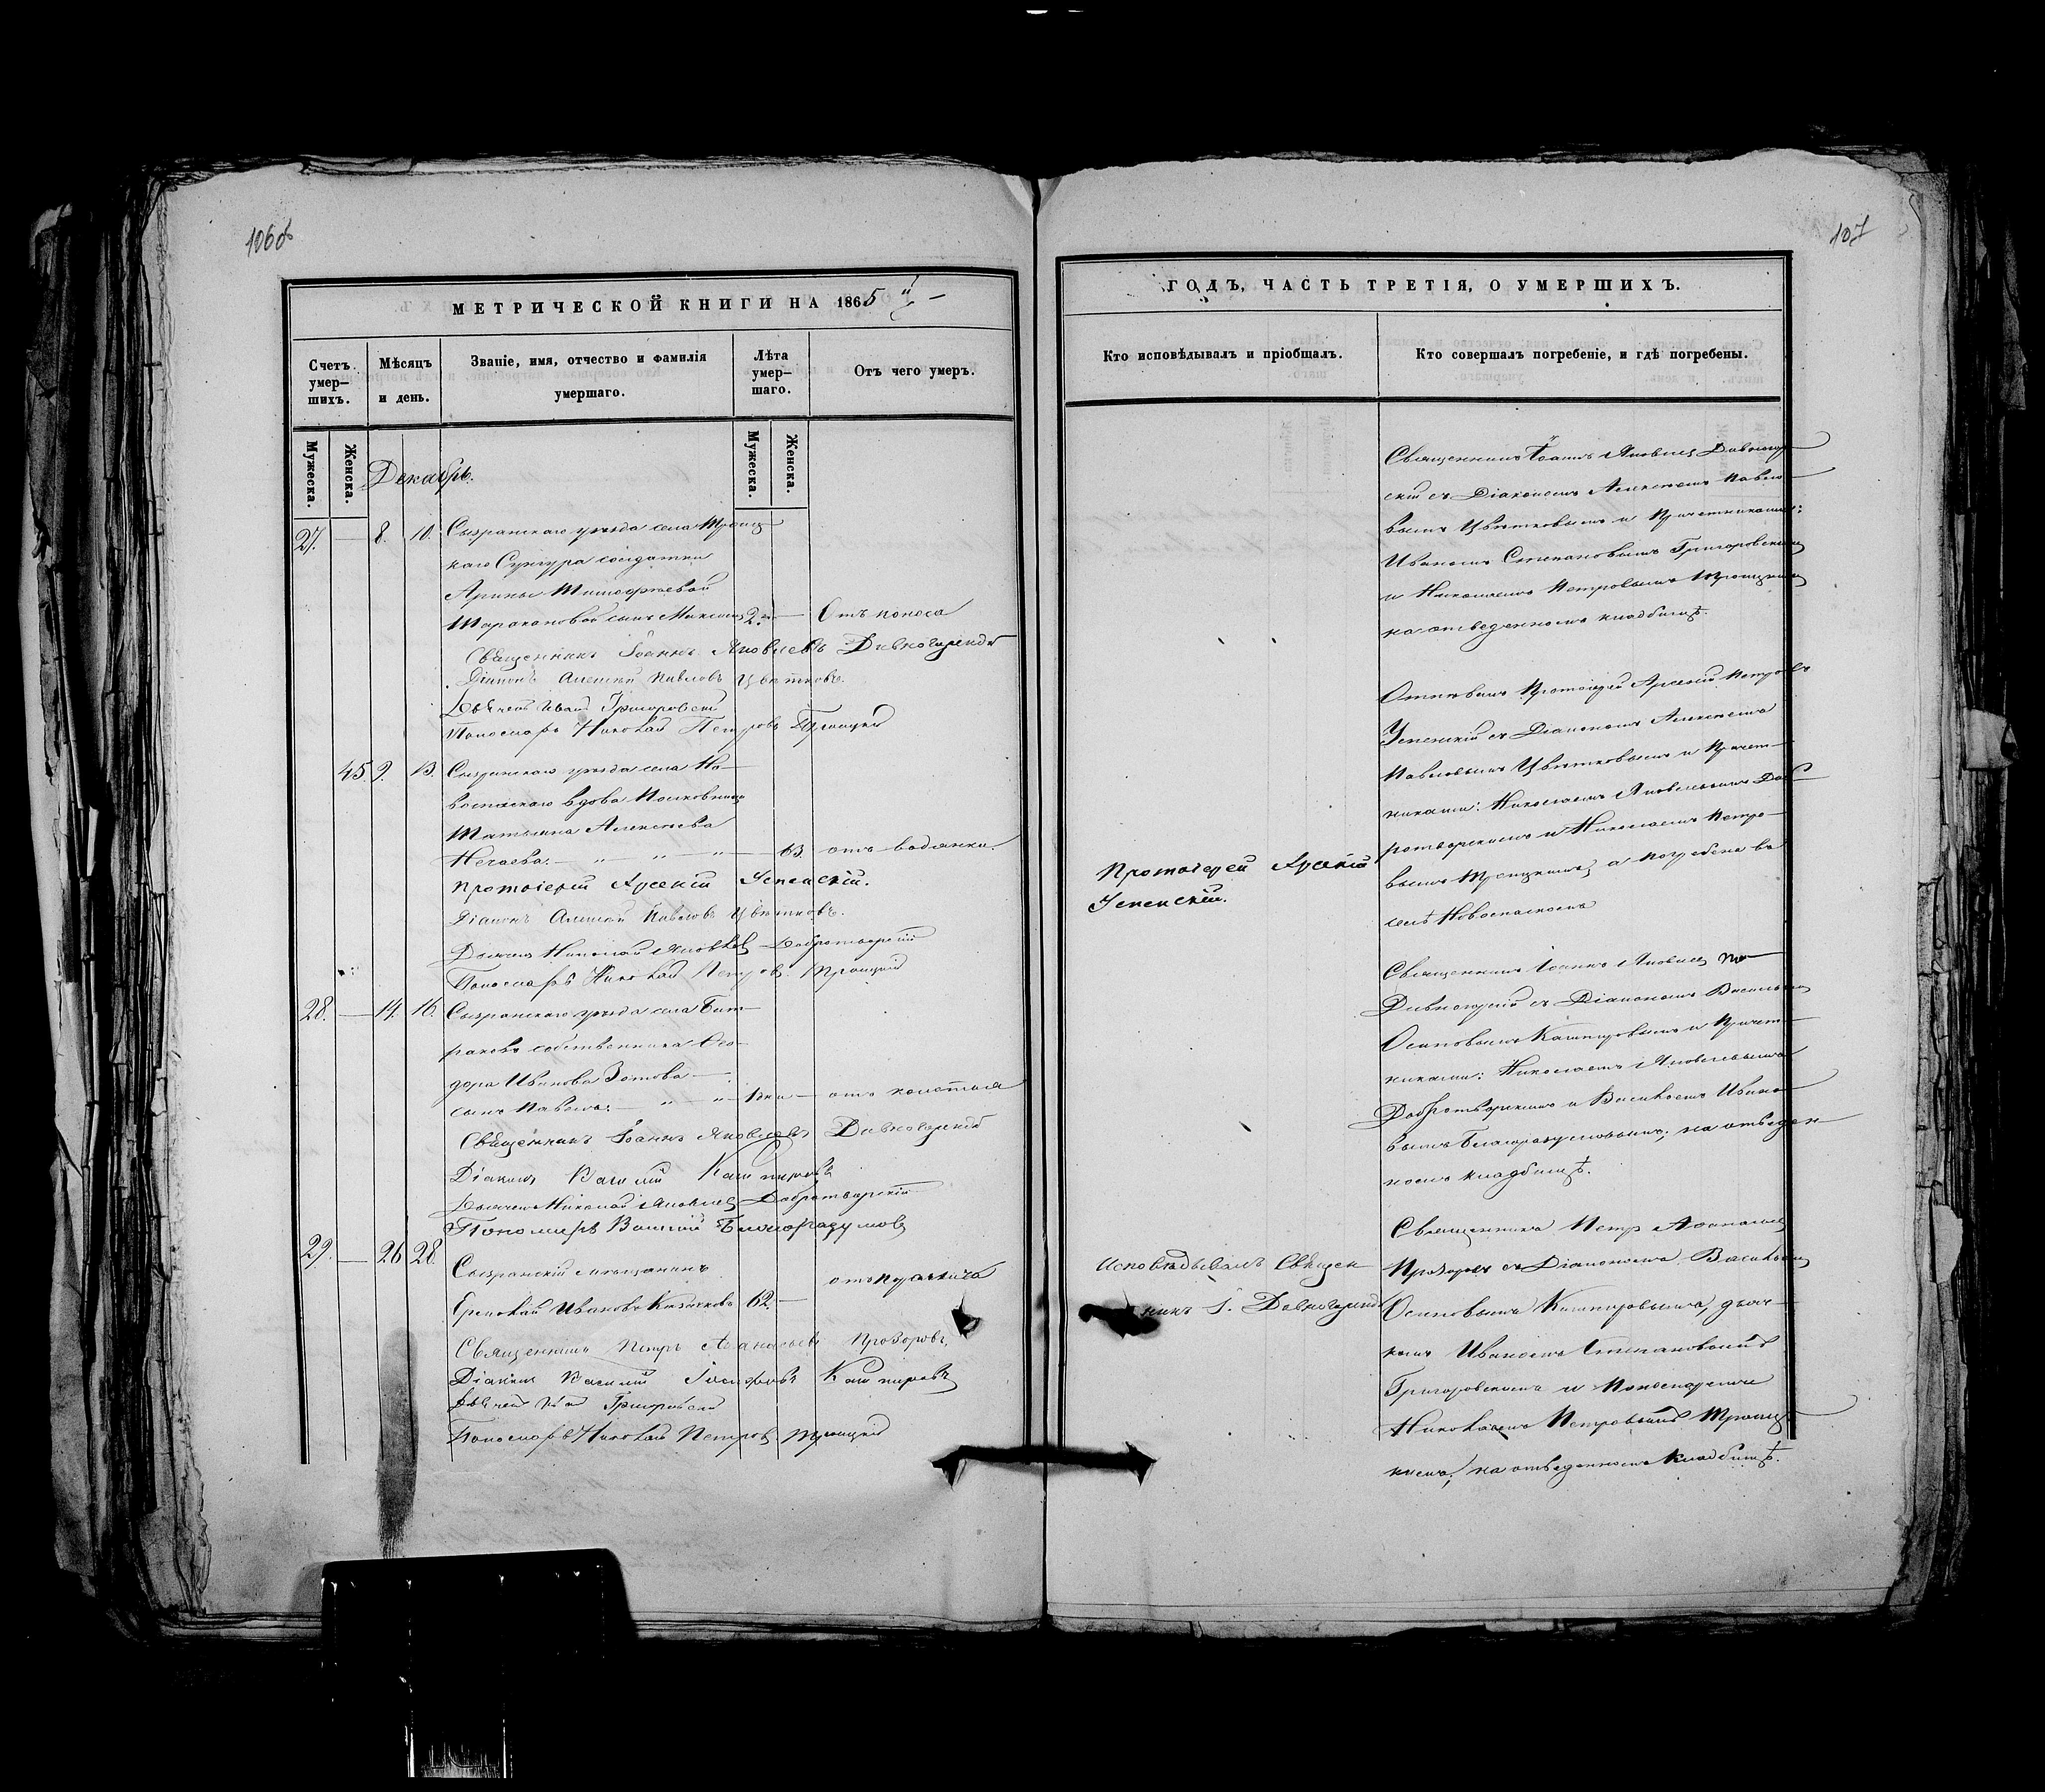 106об
МЕТРИЧЕСКОЙ КНИГИ НА 1865й
Счетъ умер-шихъ.
Мѣсяцъ и день.
Званіе, имя, отчество и фамилія умершаго.
Лѣта умер-шаго.
Отъ чего умеръ.
Мужеска.
Женска.
Мужеска.
Женска.
Декабрь.
27. — 8. 10. Сызранскаго уѣзда села Троиц-
каго Сунгура солдатки
Арины Тимофѣевой
Таракановой сынъ Максимъ 2. — Отъ поноса
Священникъ Іоаннъ Яковлевъ Дивногорскій
Діаконъ Алексѣй Павловъ Цвѣтковъ.
Дьячекъ Иванъ Григоровскій
Пономарь Николай Петровъ Троицкій
45. 9. 13. Сызранскаго уѣзда села Но-
воспаскаго вдова Полковница
Татьяна Алексѣева
Нечаева. — 63. отъ водянки.
Протоіерей Арсеній Успенскій.
Діаконъ Алексѣй Павловъ Цвѣтковъ.
Дьячекъ Николай Яковлевъ Добротворскій
Пономарь Николай Петровъ Троицкій
28. — 14. 16. Сызранскаго уѣзда села Бат-
раковъ собственника Ѳео-
дора Иванова Зотова
сынъ Павелъ. — 1 дня — отъ колотья
Священникъ Іоаннъ Яковлевъ Дивногорскій
Діаконъ Василій Кашпировъ
Дьячекъ Николай Яковлевъ Добротворскій
Пономарь Василій Благоразумовъ
29. — 26 28. Сызранскій мѣщанинъ
Ермолай Ивановъ 62. —
Священникъ Петръ Аѳанасьевъ Прозоровъ,
Діаконъ Василій Іосифовъ Кашпировъ
Дьячекъ Иванъ Григоровскій
Пономарь Николай Петровъ Троицкій
107
ГОДЪ, ЧАСТЬ ТРЕТІЯ, О УМЕРШИХЪ.
Кто исповѣдывалъ и пріобщалъ.
Кто совершалъ погребеніе, и гдѣ погребены.
Священникъ Іоаннъ Яковлевъ Дивногор-
скій съ Діакономъ Алексѣемъ Павло-
вымъ Цвѣтковымъ и Причетниками:
Иваномъ Степановымъ Григоровскимъ
и Николаемъ Петровымъ Троицкимъ
на отведенномъ кладбищѣ.
Протоіерей Арсеній
Успенскій.
Отпѣвалъ Протоіерей Арсеній Петровъ
Успенскій съ Діакономъ Алексѣемъ
Павловымъ Цвѣтковымъ и Причет-
никами: Николаемъ Яковлевымъ Доб-
ротворскимъ и Николаемъ Петро-
вымъ Троицкимъ, а погребена въ
селѣ Новоспаскомъ
Священникъ Іоаннъ Яковлевъ
Дивногорскій съ Діакономъ Василіемъ
Осиповымъ Кашпировымъ и Причет-
никами: Николаемъ Яковлевымъ
Добротворскимъ и Василіемъ Ивано-
вымъ Благоразумовымъ; на отведен-
номъ кладбищѣ.
Исповѣдывалъ Священ-
никъ І. Дивногорскій
Священникъ Петръ Аѳанасьевъ
Прозоровъ съ Діакономъ Василіемъ
Осиповымъ Кашпировымъ, дьяч-
комъ Иваномъ Степановымъ
Григоровскимъ и Пономаремъ
Николаемъ Петровымъ Троиц-
кимъ; на отведенномъ кладбищѣ.